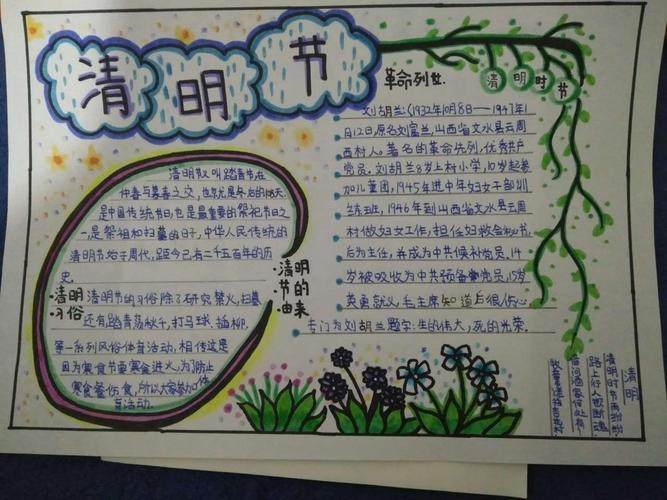 清明节
清明时节
革命列世.
刘胡兰:(1932年10月8日——1947年1
月12日,原名刘富兰,山西省文水县云周
西村人。著名的革命先列,优秀共产
党员。刘胡兰8岁上村小学,10岁起参
加儿童团,1945年进中年妇女干部训
练班,1946年到山西省文水县云周
村做妇女工作,担任妇救会秘书。
后为主任,并成为中共候补党员,14
岁被吸收为中共预备党员,15岁
英勇就义,毛主席知道后很伤心
专门为刘胡兰题字:生的伟大,死的光荣.
清明又叫踏青节,在
仲春与暮春之交,也就是冬后的108天.
是中国传统节日,也是最重要的祭祀节日之
一,是祭祖和扫墓的日子,中华人民传统的
清明节始于周代,距今已有二千五百年的历
史.
清明
节的
由来
清明
习俗
清明节的习俗除了研究禁火,扫墓
还有踏青荡秋千,打马球.插柳.
第一系列风俗体育活动,相传这是
因为寒食节要寒食进火,为了防止
寒食餐伤食,所以大家参加体
育活动.
清明
清明时节雨纷纷
路上行人欲断魂
借问酒家何处有
牧童遥指杏花村